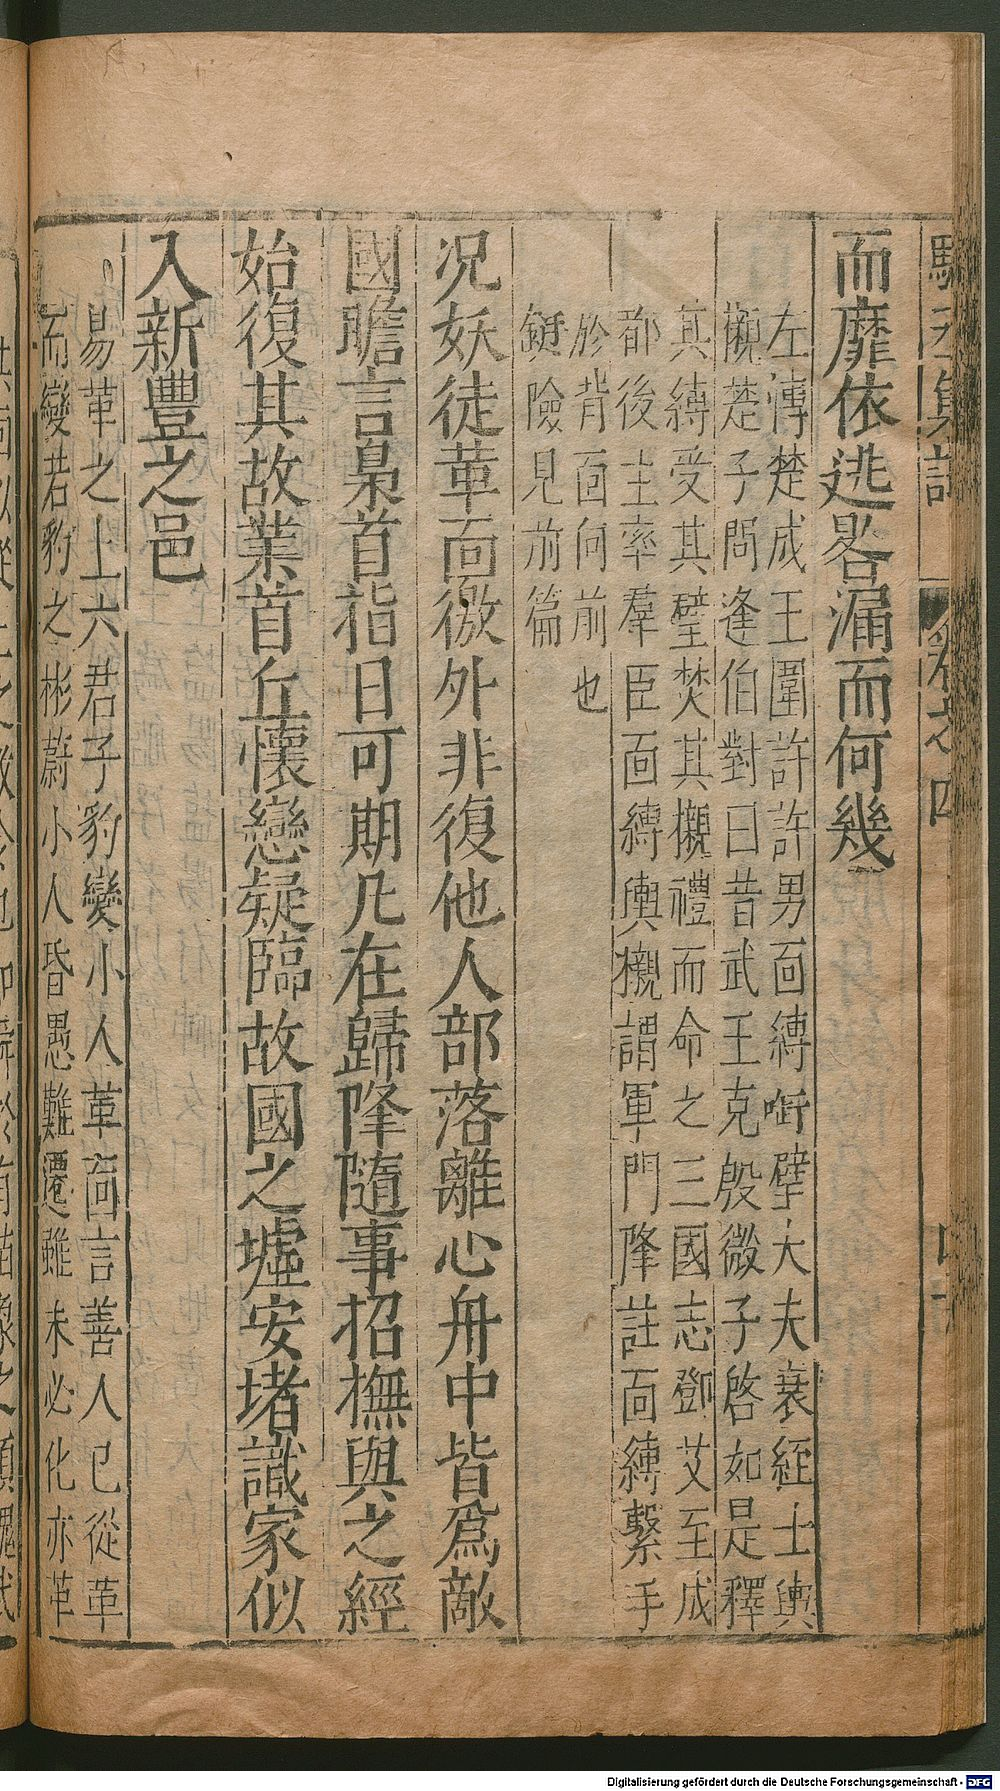 而靡依逃畧漏而何幾
左傳楚成王圍許許男面縛啣璧大夫衰絰士輿
櫬楚子問逢伯對曰昔武王克殷微子啓如是釋
其縛受其璧焚其櫬禮而命之三國志鄧艾至成
都後主率羣臣面縛輿櫬謂軍門降註面縛繫手
於背面向前也
鋌險見前篇
况妖徒革面徼外非復他人部落離心舟中皆爲敵
國瞻言梟首指日可期凡在歸降隨事招撫與之經
始復其故業首丘懷戀疑臨故國之墟安堵識家似
入新豐之邑
易革之上六君子豹變小人革面言善人已從革
而變若豹之彬蔚小人昏愚難遷雖未必化亦革
Digitalisierung gefördert durch die Deutsche Forschungsgemeinschaft - DFG